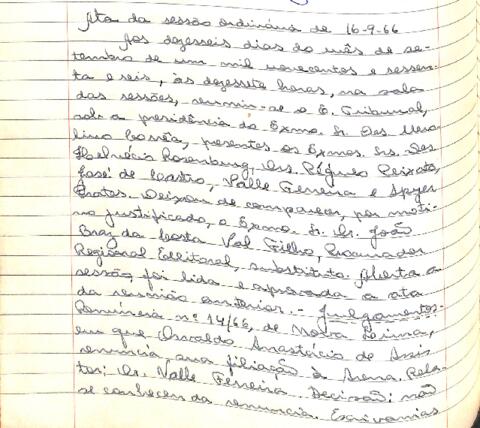 Ata da sessão ordinária de 16-9-66
Aos dezesseis dias do mês de se-
tembro de um mil novecentos e sessen-
ta e seis, às dezessete horas, na sala
das sessões, reuniu-se o E. Tribunal,
sob a presidência do Exmo. Sr. Des. Mero-
lino Corrêa, presentes os Exmos. Srs. Des.
Helvécio Rosenburg, Drs. Régulo Peixoto,
José de Castro, Valle Ferreira e Spyer
Prates. Deixou de comparecer, por moti-
vo justificado, o Exmo. Sr. Dr. João
Braz da Costa Val Filho, Procurador
Regional Eleitoral, substituto. Aberta a
sessão, foi lida e aprovada a ata
da reunião anterior. - Julgamentos:
Renúncia nº 14/66, de Nova Lima,
em que Oswaldo Anastácio de Assis
renuncia, sua filiação à Arena. Rela-
tor: Dr. Valle Ferreira. Decisão: não
se conheceu da renuncia. Escrivanias